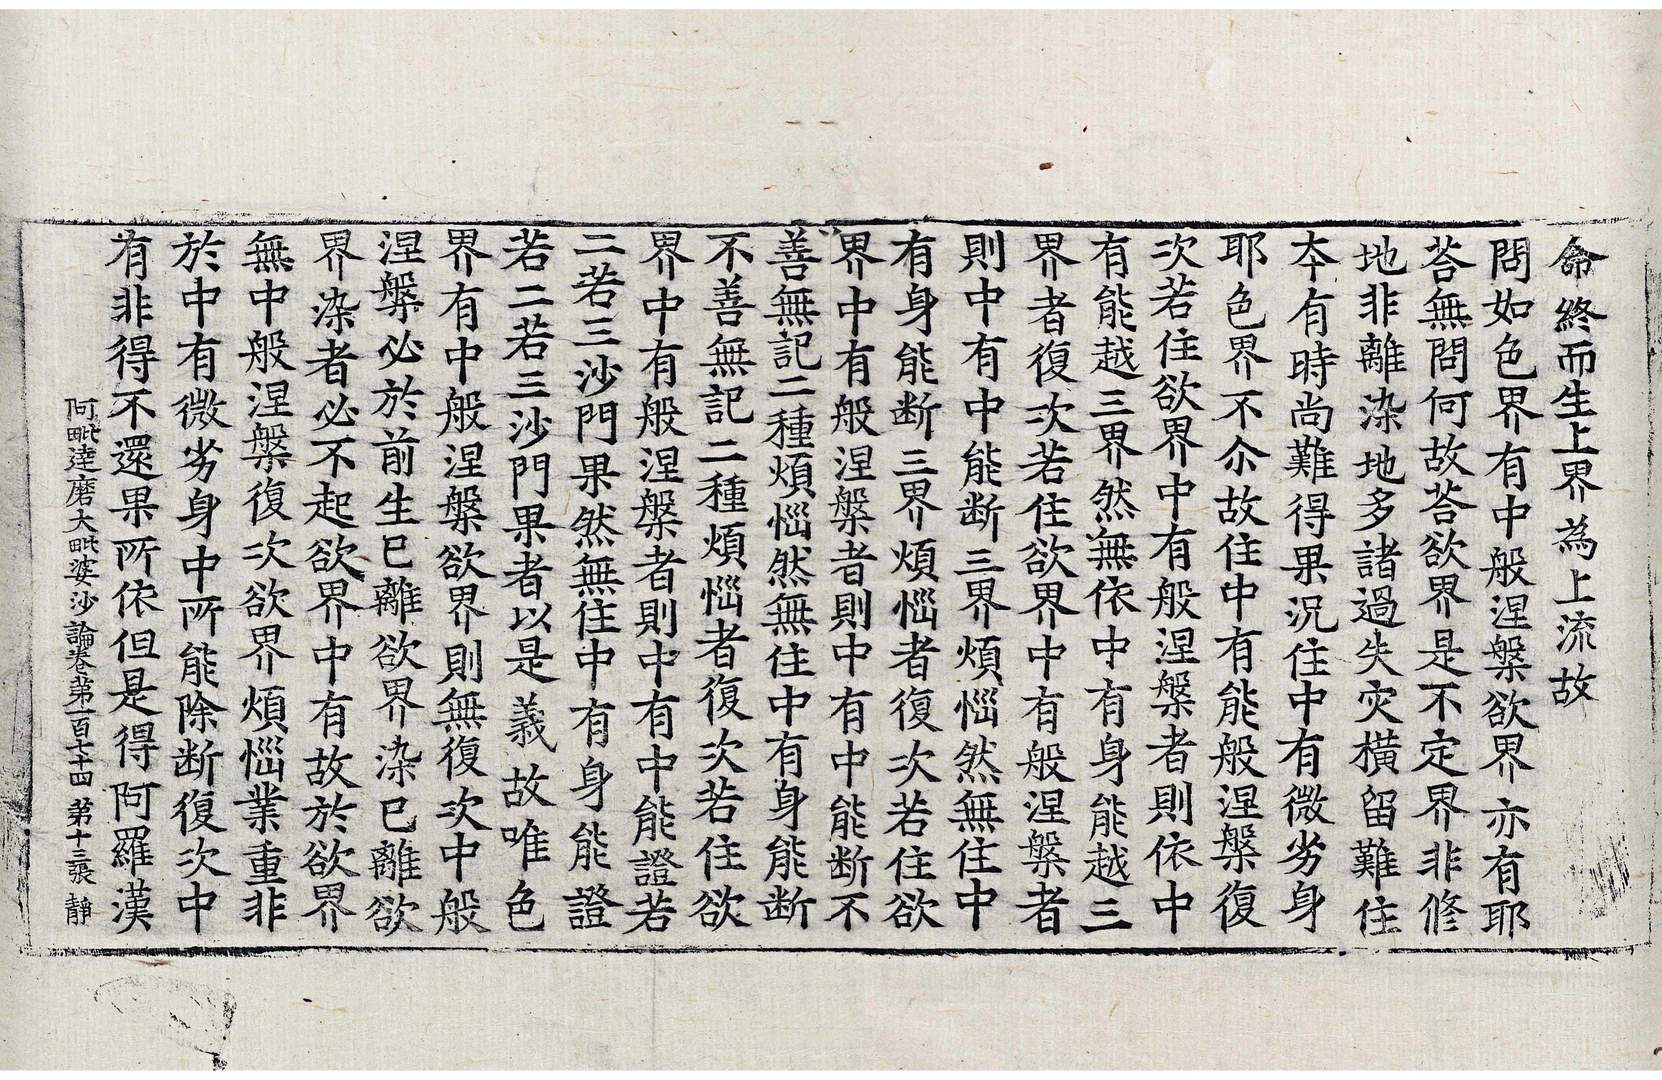 命終而生上界為上流故
問如色界有中般涅槃欲界亦有耶
荅無問何故荅欲界是不定界非修
地非離染地多諸過失灾橫留難住
本有時尚難得果況住中有微劣身
耶色界不尒故住中有能般涅槃復
次若住欲界中有般涅槃者則依中
有能越三界然無依中有身能越三
界者復次若住欲界中有般涅槃者
則中有中能断三界煩惱然無住中
有身能断三界煩惱者復次若住欲
界中有般涅槃者則中有中能断不
善無記二種煩惱然無住中有身能断
不善無記二種煩惱者復次若住欲
界中有般涅槃者則中有中能證若
二若三沙門果然無住中有身能證
若二若三沙門果者以是義故唯色
界有中般涅槃欲界則無復次中般
涅槃必於前生已離欲界染已離欲
界染者必不起欲界中有故於欲界
無中般涅槃復次欲界煩惱業重非
於中有微劣身中所能除断復次中
有非得不還果所依但是得阿羅漢
阿毗達磨大毗婆沙論卷第一百七十四 第十三張 靜